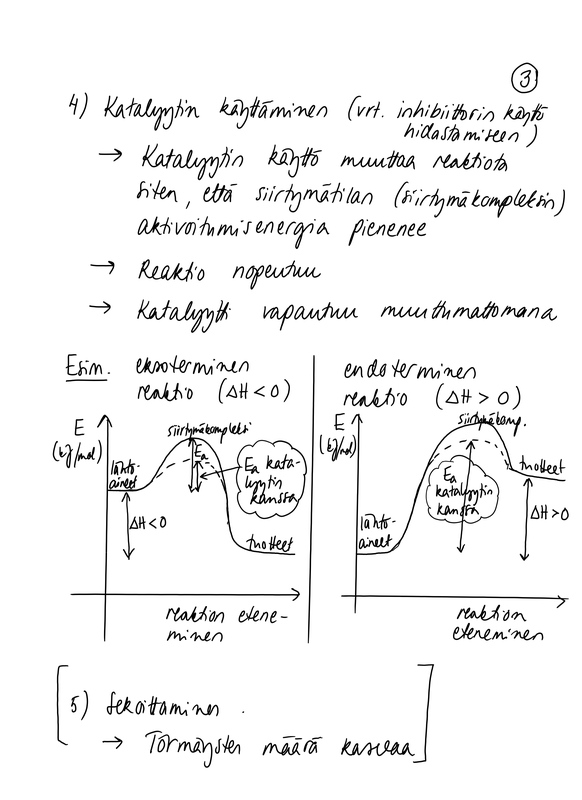 3
4) Katalyytin käyttäminen (vrt. inhibiittorin käyttö
hidastamiseen)
→ Katalyytin käyttö muuttaa reaktiota
siten, että siirtymätilan (siirtymäkompleksin)
aktivoitumisenergia pienenee
→ Reaktio nopeutuu
→ Katalyytti vapautuu muuttumattomana
Esim. eksoterminen
reaktio (ΔH < 0)
E
(kJ/mol)
siirtymäkompleksi
Ea
lähtö-
aineet
Ea kata-
lyytin
kanssa
ΔH < 0
tuotteet
reaktion etene-
minen
endoterminen
reaktio (ΔH > 0)
E
(kJ/mol)
siirtymäkomp.
tuotteet
Ea
katalyytin
kanssa
lähtö-
aineet
ΔH > 0
reaktion
eteneminen
5) Sekoittaminen.
→ Törmäysten määrä kasvaa